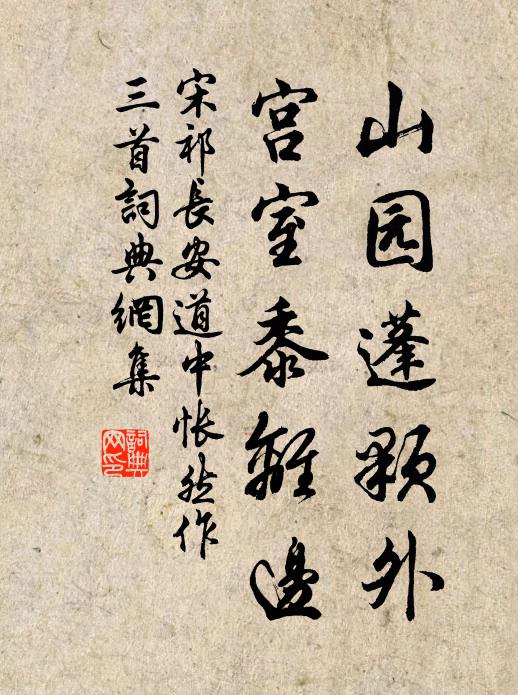 山园蓬颗外
宫室黍離邊
宋祁長安道中悵然作
三首詞典網集
詞典
网印